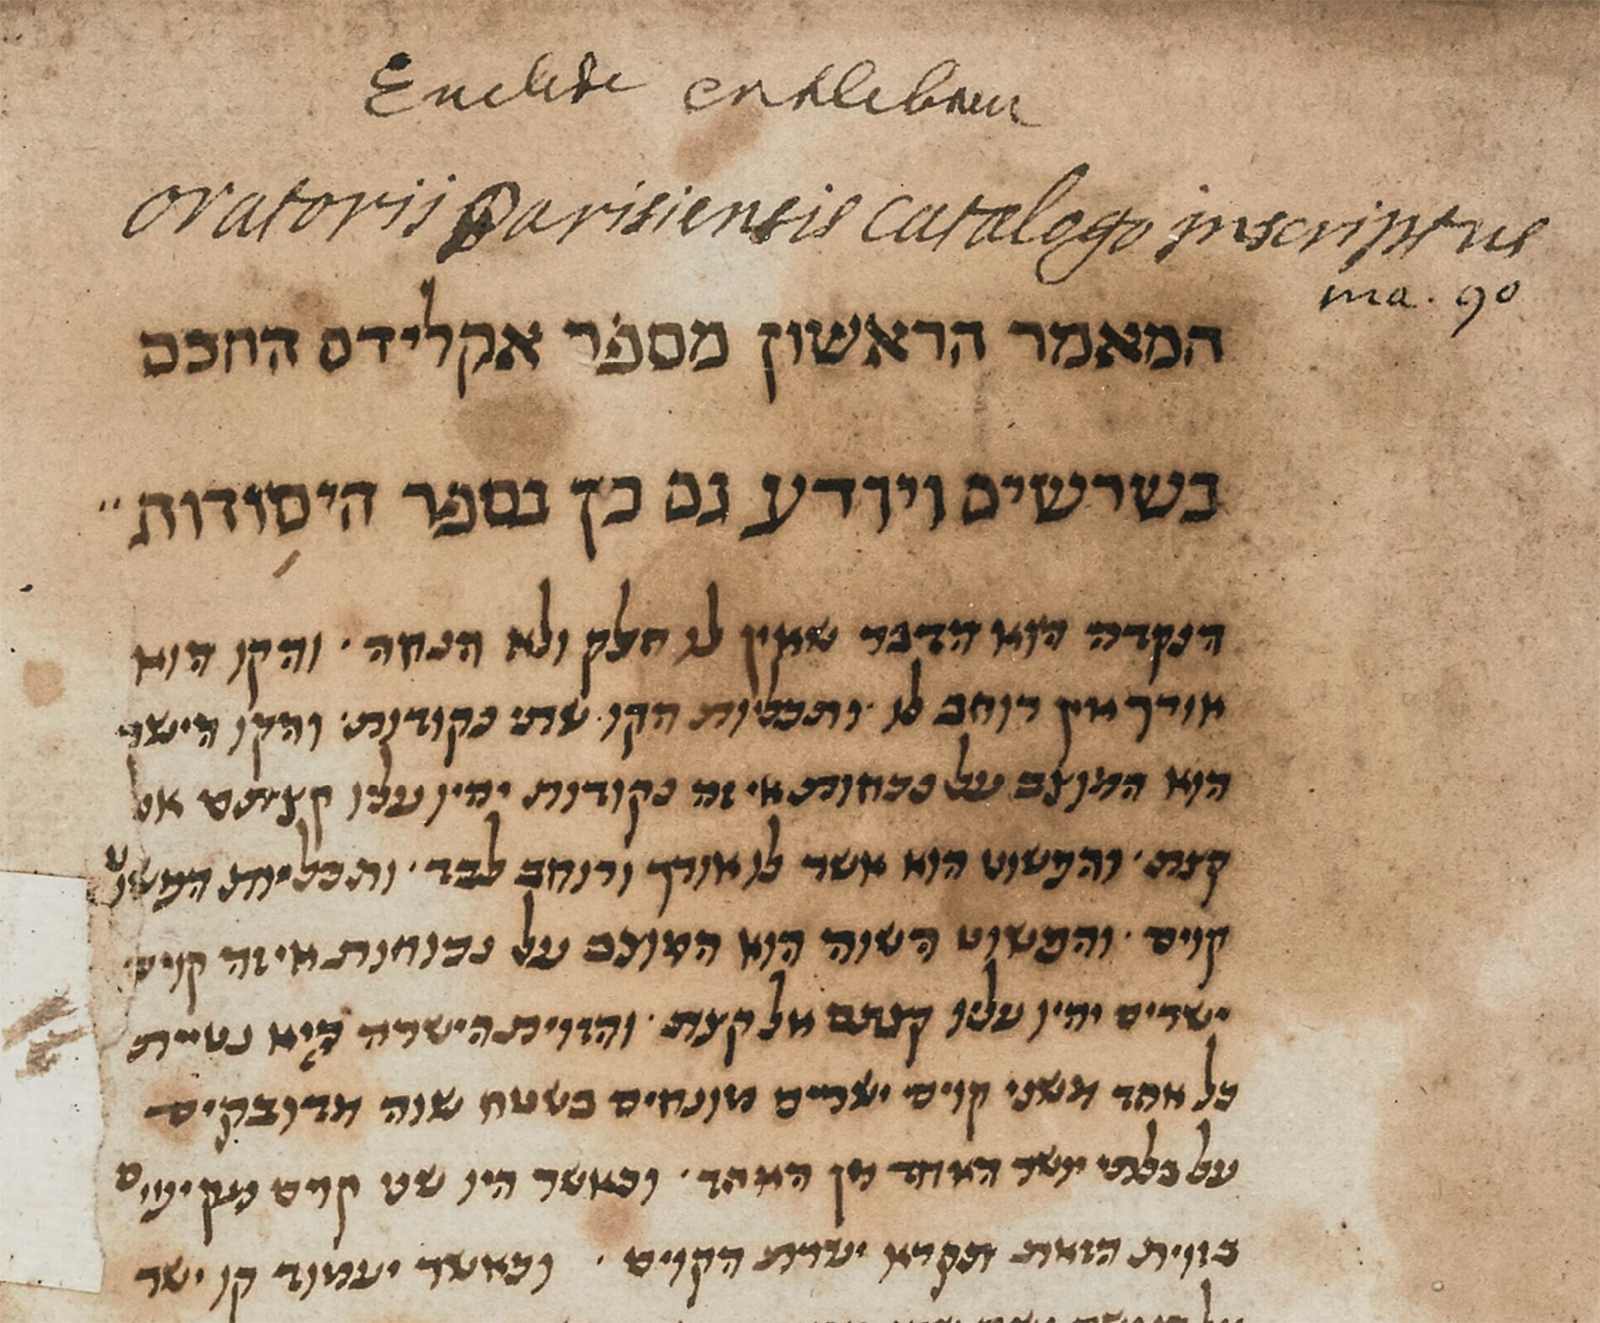 Euclide en hebreu
oratorii Parisiensis catalogo inscriptus
ma. 90
המאמר הראשון מספר אקלידס החכם
בשרשים ויודע גם כן בספר היסודות
הנקדה הוא הדבר שאין לו חלק ולא הנחה · והקו הוא
אורך אין רוחב לו · ותכליות הקו שתי נקודות · והקו הישר
הוא המוצב על נכחות איזה נקודות יהיו עליו קצתם אל
קצת · והפשוט הוא אשר לו אורך ורוחב לבד · ותכליות הפשוט
קוים · והפשוט השוה הוא המוצב על נכוחות איזה קוים
ישרים יהיו עליו קצתם אל קצת · והזוית הישרה היא נטיית
כל אחד משני קוים ישרים מונחים בשטח שוה מדובקים
על בלתי יושר האחד מן האחד · וכאשר היו שני קוים מקיפים
בזוית הזאת תקרא ישרת הקוים · וכאשר יעמוד קו ישר